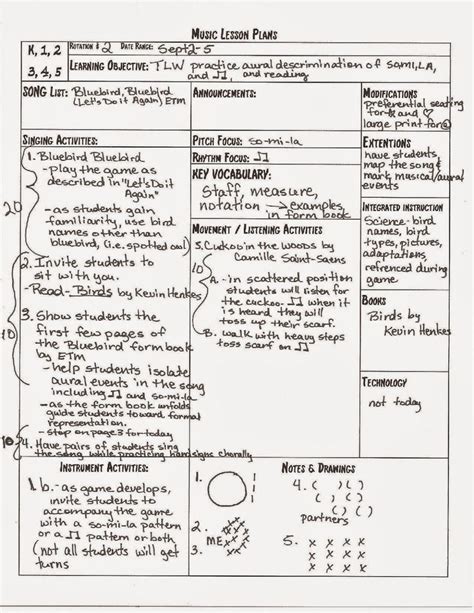 MUSIC LESSON PLANS
K, 1, 2
3, 4, 5
ROTATION # 2 DATE RANGE: Sept 2-5
LEARNING OBJECTIVE: TLW practice aural descrimination of SO,MI,LA,
and ♫, and reading
SONG LIST: Bluebird, Bluebird
(Let's Do it Again) ETM
ANNOUNCEMENTS:
MODIFICATIONS
preferential seating
for ☆ and ♡
large print for
SINGING ACTIVITIES:
1. Bluebird Bluebird
- play the game as
described in "Let's Do it
Again"
20
- as students gain
familiarity, use bird
names other than
bluebird, (i.e. spotted owl)
2. Invite students to
sit with you.
-Read- Birds by Kevin Henkes
3. Show students the
first few pages of
10
the Bluebird form book
by ETM
- help students isolate
aural events in the song
including ♫ and so-mi-la
- as the form book unfolds
guide students toward formal
representation.
- stop on page 3 for today
10
4. Have pairs of students sing
the song while practicing handsigns chorally
PITCH FOCUS: so-mi-la
RHYTHM FOCUS: ♫
KEY VOCABULARY:
Staff, measure,
notation → examples,
in form book
MOVEMENT / LISTENING ACTIVITIES
5. Cuckoo in the woods by
Camille Saint-Saens
10
A. - in scattered position
students will listen for
the cuckoo- ♫ when it
is heard they will
toss up their scarf.
B. walk with heavy steps
toss scarf on ♫
EXTENTIONS
have students
map the song
mark musical/aural
events
INTEGRATED INSTRUCTION
Science- bird
names, bird
types, pictures,
adaptations,
refrenced during
game
BOOKS
Birds by
Kevin Henkes
TECHNOLOGY
not today
INSTRUMENT ACTIVITIES:
1. b. - as game develops,
invite students to
accompany the game
with a so-mi-la pattern
or a ♫ pattern or both
(not all students will get
turns
NOTES & DRAWINGS
1.
2.
ME
3.
4. ( ) ( )
( ) ( )
( ) ( )
partners
5. x x x x
x x x x
x x x x